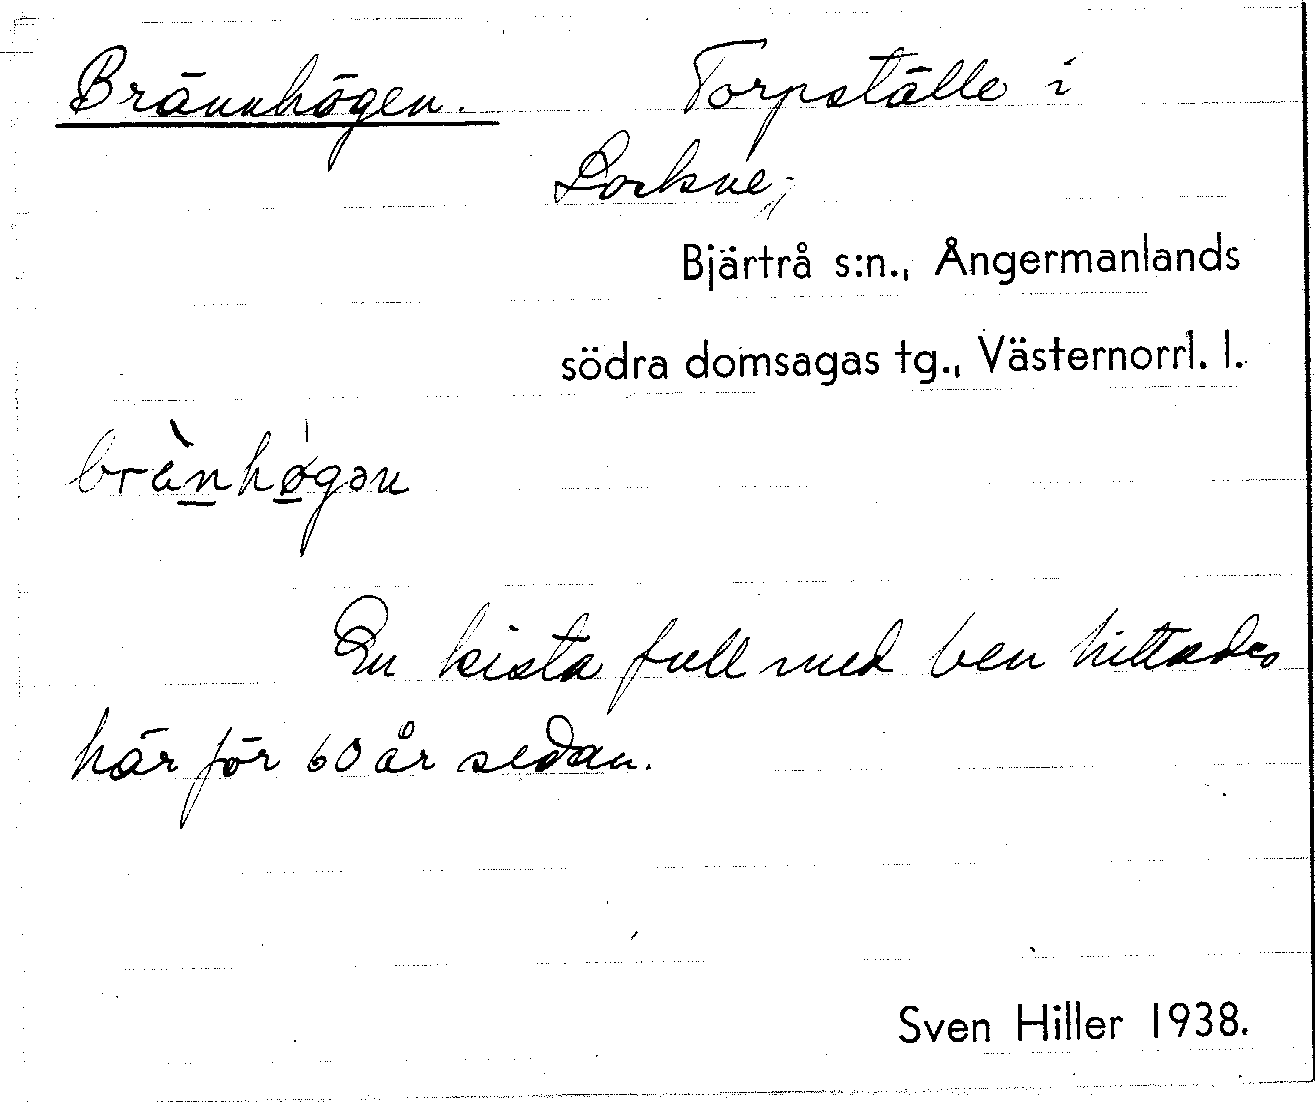 Brännhögen. Torpställe i
Lockne,
Bjärtrå s:n., Ångermanlands
södra domsagas tg., Västernorrl. l.
brä̀nhø̀gən
En kista full med ben hittades
här för 60 år sedan.
Sven Hiller 1938.